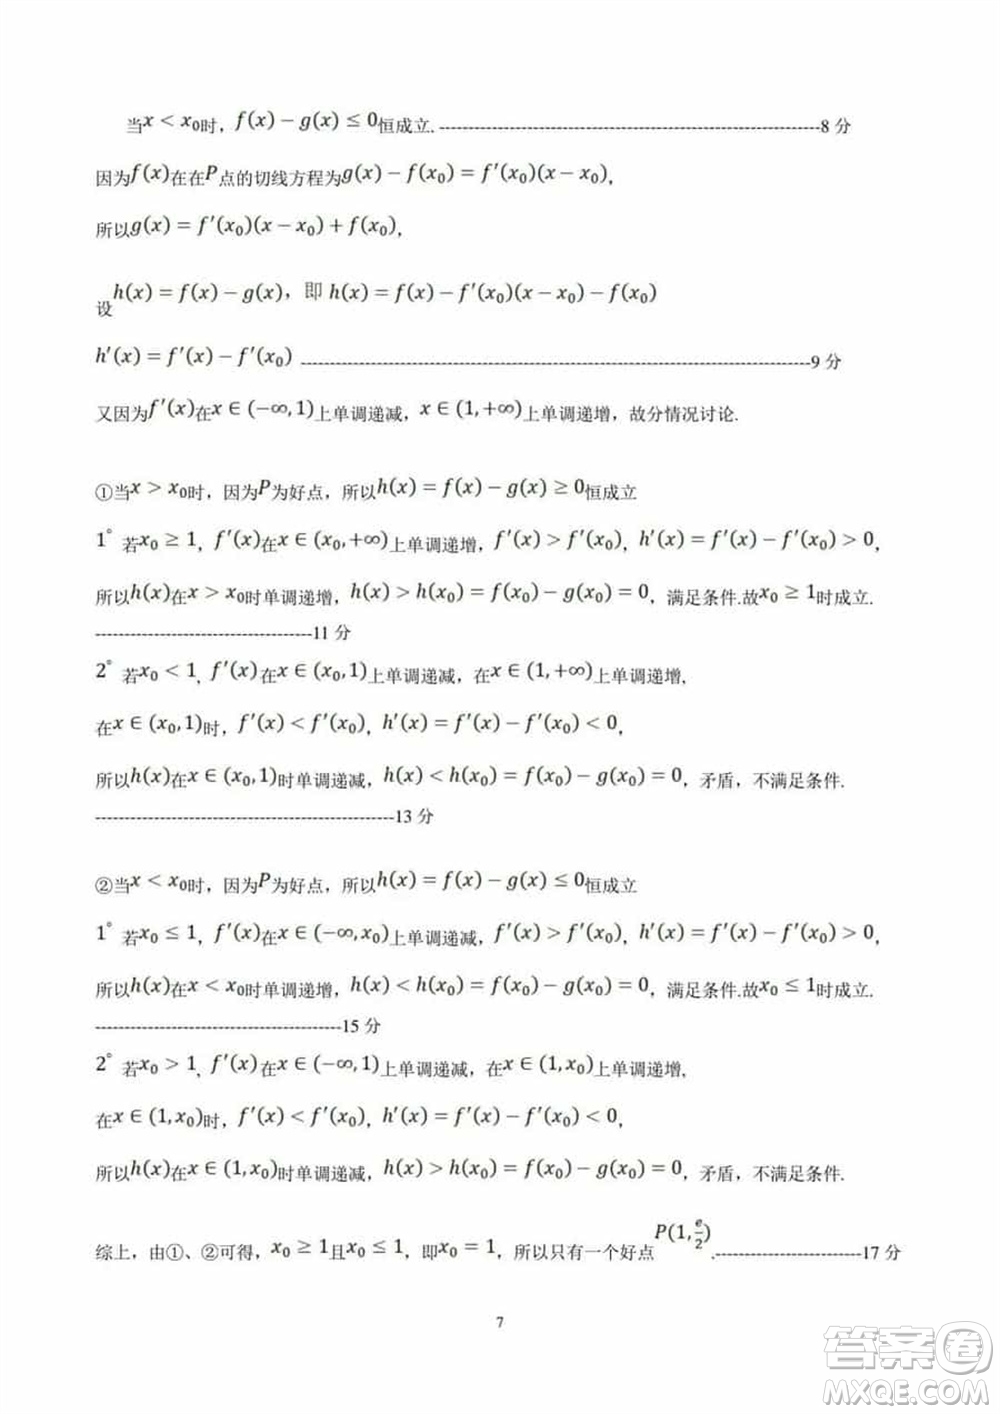 当x < x₀时，f(x) − g(x) ≤ 0恒成立. -----------------------------------------------------------------8 分
因为f(x)在在P点的切线方程为g(x) − f(x₀) = f′(x₀)(x − x₀),
所以g(x) = f′(x₀)(x − x₀) + f(x₀),
设h(x) = f(x) − g(x)，即 h(x) = f(x) − f′(x₀)(x − x₀) − f(x₀)
h′(x) = f′(x) − f′(x₀) ---------------------------------------------------------------------------------------9 分
又因为f′(x)在x ∈ (−∞, 1)上单调递减，x ∈ (1, +∞)上单调递增，故分情况讨论.
①当x > x₀时，因为P为好点，所以h(x) = f(x) − g(x) ≥ 0恒成立
1° 若x₀ ≥ 1, f′(x)在x ∈ (x₀, +∞)上单调递增，f′(x) > f′(x₀), h′(x) = f′(x) − f′(x₀) > 0,
所以h(x)在x > x₀时单调递增，h(x) > h(x₀) = f(x₀) − g(x₀) = 0，满足条件.故x₀ ≥ 1时成立.
-------------------------------------11 分
2° 若x₀ < 1, f′(x)在x ∈ (x₀, 1)上单调递减，在x ∈ (1, +∞)上单调递增.
在x ∈ (x₀, 1)时，f′(x) < f′(x₀), h′(x) = f′(x) − f′(x₀) < 0,
所以h(x)在x ∈ (x₀, 1)时单调递减，h(x) < h(x₀) = f(x₀) − g(x₀) = 0，矛盾，不满足条件.
---------------------------------------------------13 分
②当x < x₀时，因为P为好点，所以h(x) = f(x) − g(x) ≤ 0恒成立
1° 若x₀ ≤ 1, f′(x)在x ∈ (−∞, x₀)上单调递减，f′(x) > f′(x₀), h′(x) = f′(x) − f′(x₀) > 0,
所以h(x)在x < x₀时单调递增，h(x) < h(x₀) = f(x₀) − g(x₀) = 0，满足条件.故x₀ ≤ 1时成立.
------------------------------------------15 分
2° 若x₀ > 1, f′(x)在x ∈ (−∞, 1)上单调递减，在x ∈ (1, x₀)上单调递增.
在x ∈ (1, x₀)时，f′(x) < f′(x₀), h′(x) = f′(x) − f′(x₀) < 0,
所以h(x)在x ∈ (1, x₀)时单调递减，h(x) > h(x₀) = f(x₀) − g(x₀) = 0，矛盾，不满足条件.
综上，由①、②可得，x₀ ≥ 1且x₀ ≤ 1，即x₀ = 1，所以只有一个好点P(1, e/2).-------------------------17 分
7
答案卷
MXQE.COM